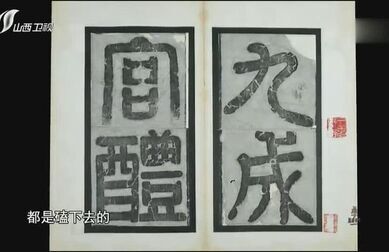 山西卫视
九成
宫醴
都是磕下去的